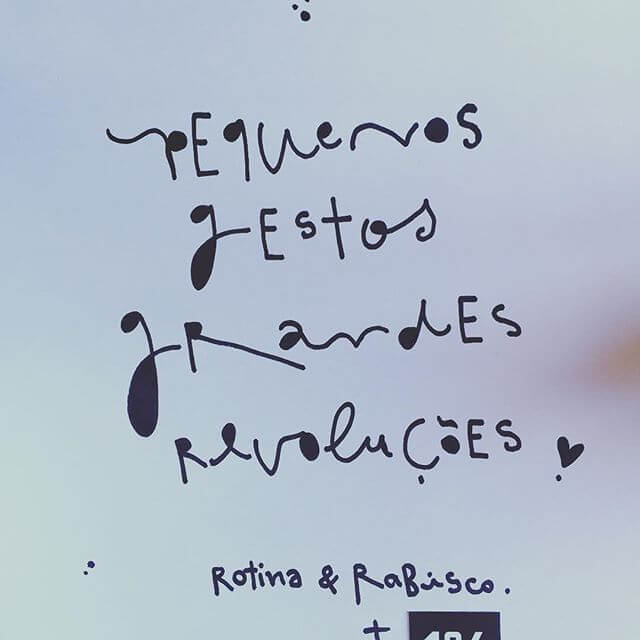 PEQUENOS
gESTOS
gRANDES
REVOLUÇÕES
Rotina & Rabisco.
+